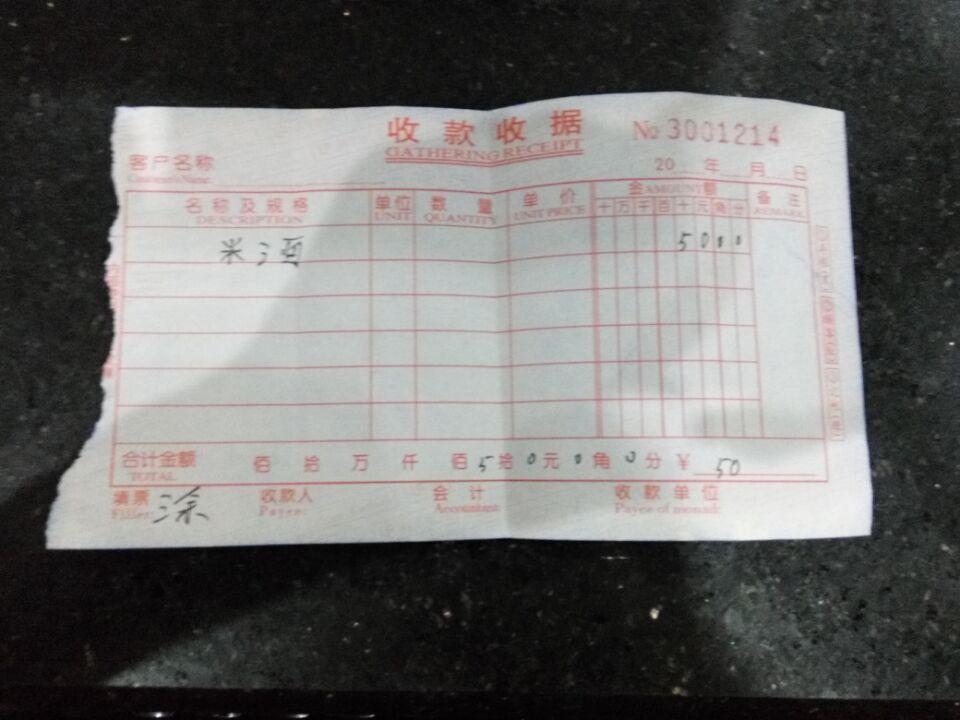 收款收据
GATHERING RECEIPT
No 3001214
客户名称
20 年 月 日
名称及规格 单位 数量 单价 金额 备注
DESCRIPTION UNIT QUANTITY UNIT PRICE AMOUNT REMARK
十 万 千 百 十 元 角 分
米酒 5 0 0 0
合计金额 佰 拾 万 仟 佰 5 拾 0 元 0 角 0 分 ¥ 50
TOTAL
填票 涂 收款人 会计 收款单位
Filler: Payee: Accountant: Payee of monad: